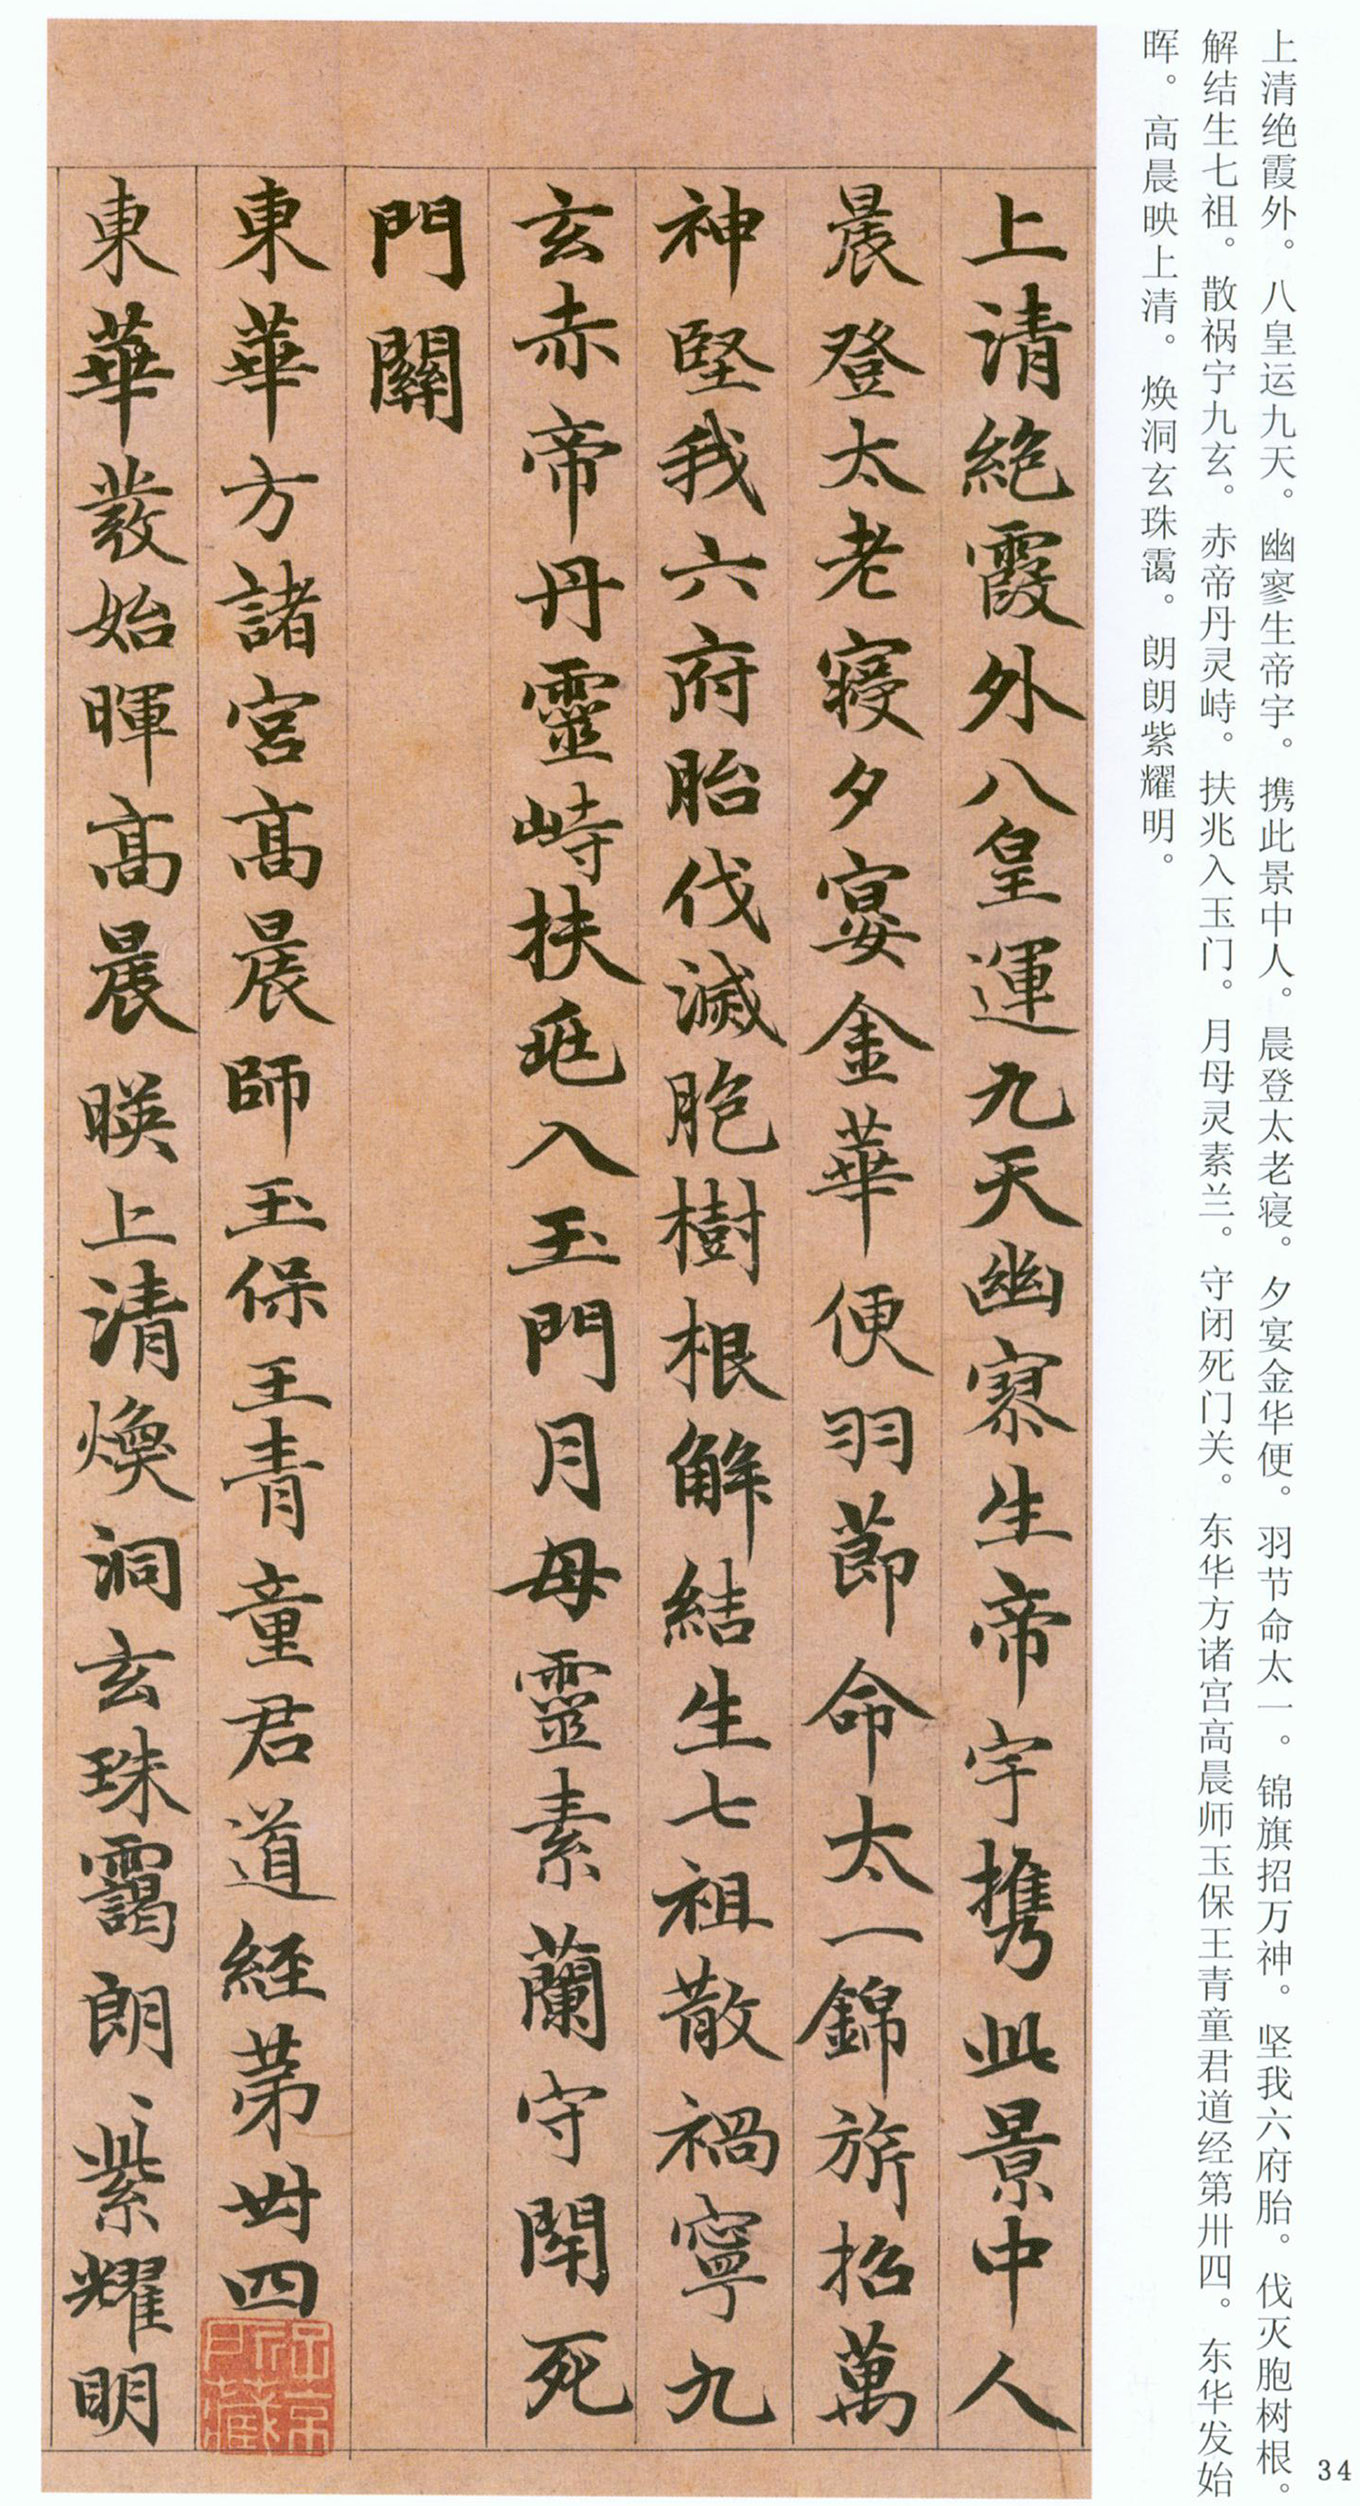 上清绝霞外。八皇运九天。幽寥生帝宇。携此景中人。晨登太老寝。夕宴金华便。羽节命太一。锦旗招万神。坚我六府胎。伐灭胞树根。
解结生七祖。散祸宁九玄。赤帝丹灵峙。扶兆入玉门。月母灵素兰。守闭死门关。东华方诸宫高晨师玉保王青童君道经第卅四。东华发始
晖。高晨映上清。焕洞玄珠霭。朗朗紫耀明。
上清絶霞外八皇運九天幽寥生帝宇携此景中人
晨登太老寢夕宴金華便羽節命太一錦旂招萬
神堅我六府胎伐滅胞樹根解結生七祖散禍寧九
玄赤帝丹靈峙扶兆入玉門月母靈素蘭守閇死
門關
東華方諸宮高晨師玉保王青童君道經第卅四
東華發始暉高晨暎上清煥洞玄珠靄朗〻紫耀明
34